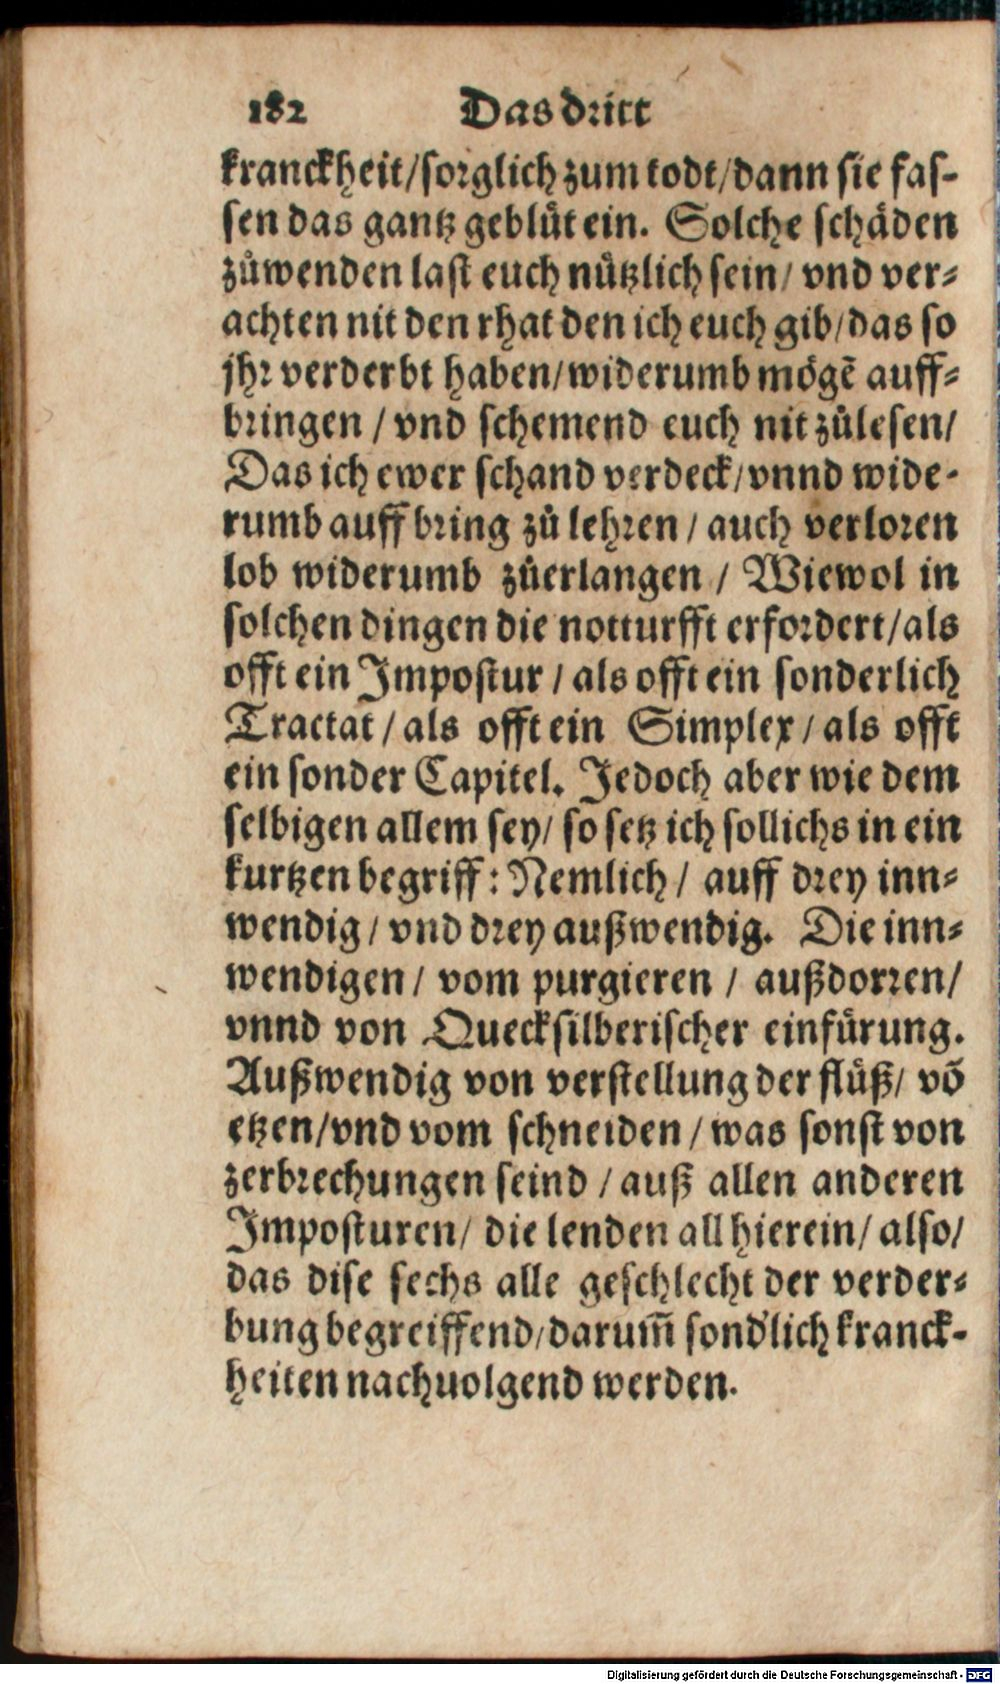 182 Das dritt
kranckheit/sorglich zum todt/dann sie fas-
sen das gantz geblüt ein. Solche schäden
zůwenden last euch nützlich sein/ vnd ver-
achten nit den rhat den ich euch gib/das so
jhr verderbt haben/widerumb mögẽ auff-
bringen / vnd schemend euch nit zůlesen/
Das ich ewer schand verdeck/vnnd wide-
rumb auff bring zů lehren / auch verloren
lob widerumb zůerlangen / Wiewol in
solchen dingen die notturfft erfordert/als
offt ein Impostur / als offt ein sonderlich
Tractat / als offt ein Simplex / als offt
ein sonder Capitel. Jedoch aber wie dem
selbigen allem sey/ so setz ich sollichs in ein
kurtzen begriff: Nemlich / auff drey inn-
wendig / vnd drey außwendig. Die inn-
wendigen / vom purgieren / außdorren/
vnnd von Quecksilberischer einfürung.
Außwendig von verstellung der flüß/ võ
etzen/vnd vom schneiden / was sonst von
zerbrechungen seind / auß allen anderen
Imposturen/ die lenden all hierein/ also/
das dise sechs alle geschlecht der verder-
bung begreiffend/darum̃ sond'lich kranck-
heiten nachuolgend werden.
Digitalisierung gefördert durch die Deutsche Forschungsgemeinschaft - DFG